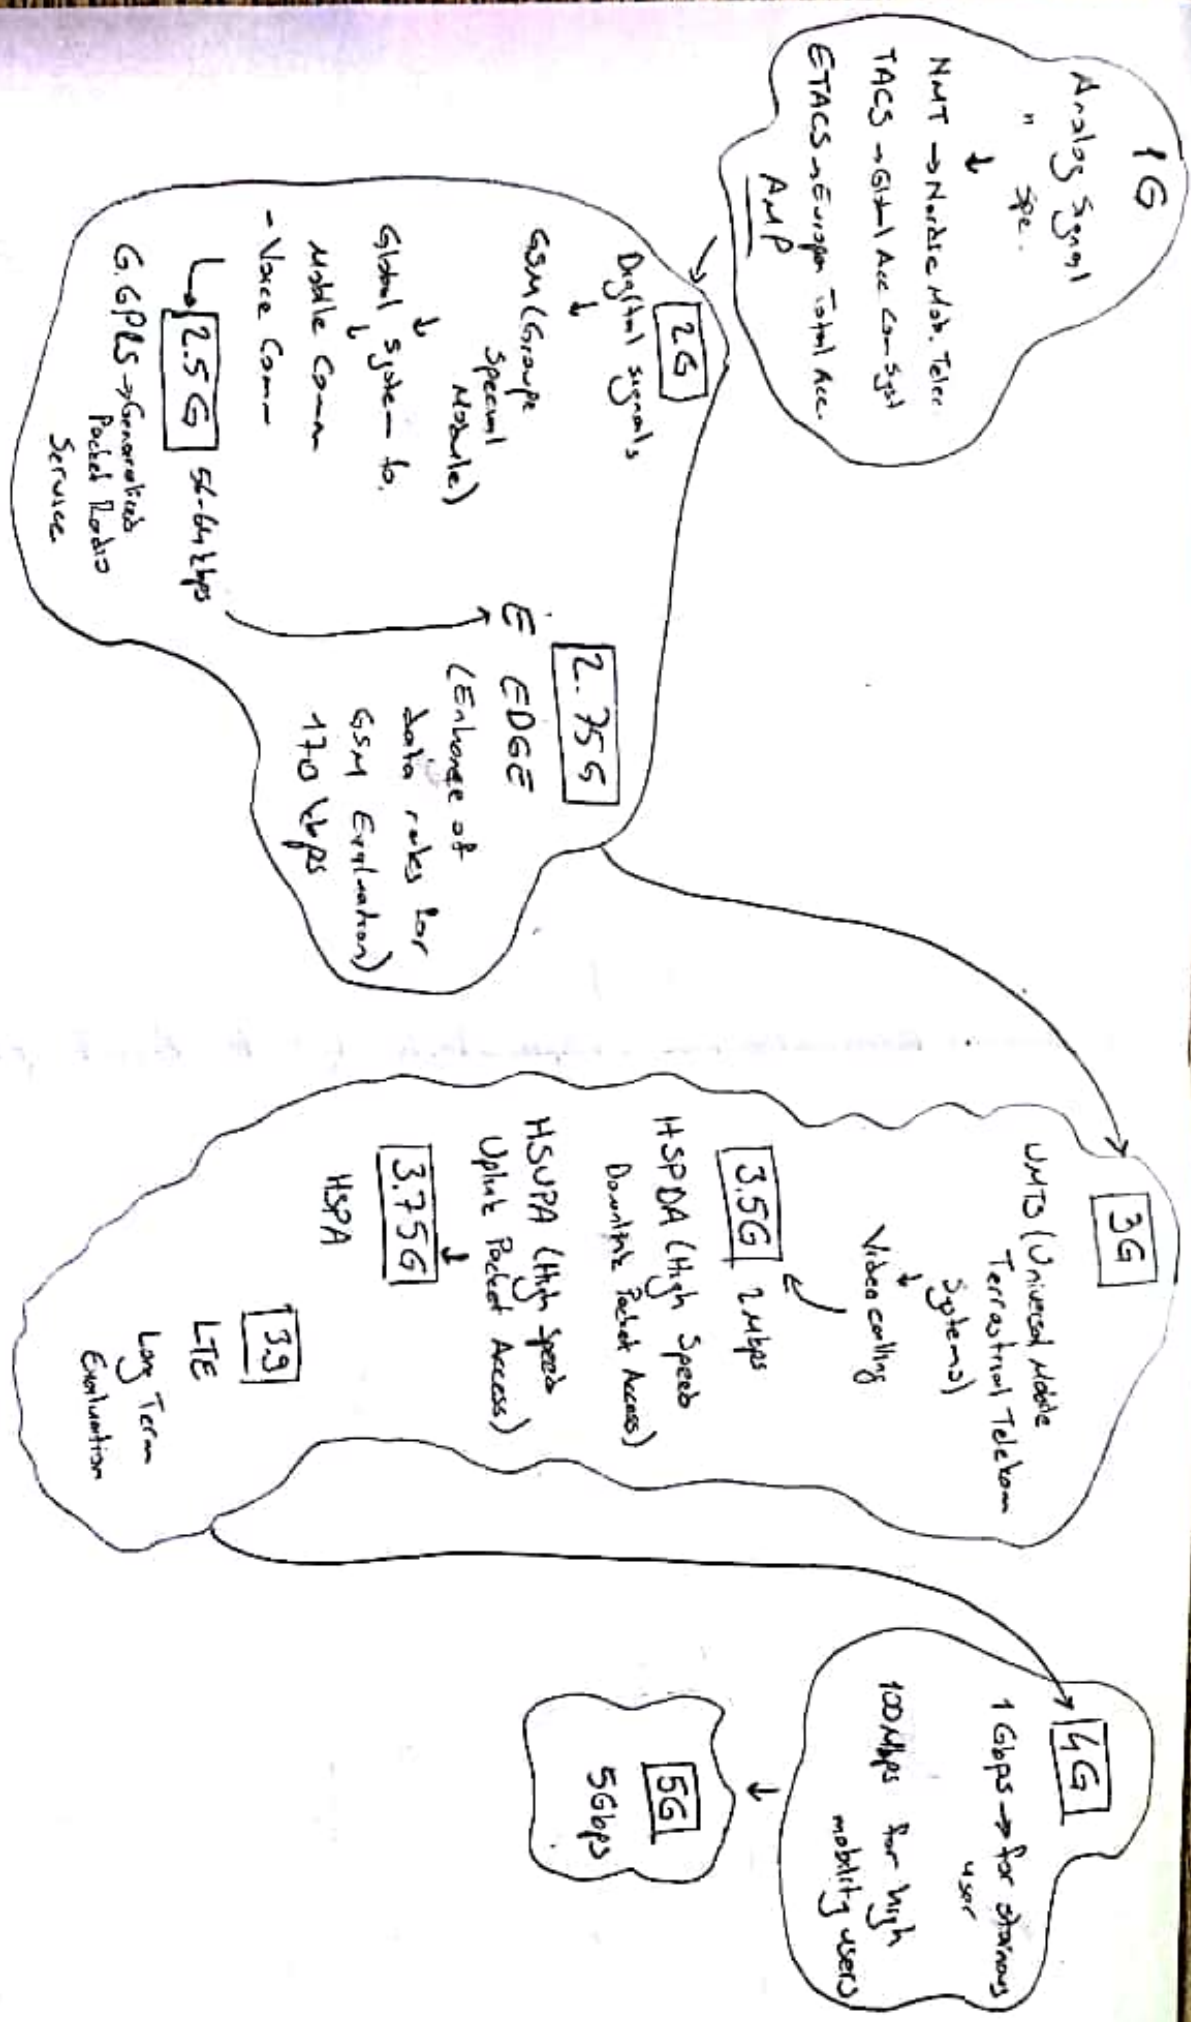 1G
Analog Signal
" Spe.
↓
NMT → Nordic Mob. Telec.
TACS → Global Acc Com Syst
ETACS → Europan Total Acc.
AMP
2G
Digital signals
↓
GSM (Groupe
Special
Mobile)
↓
Global System to.
↓
Mobile Comm
- Voice Comm
2.5G 56-64kbps
G.GPRS → Generalized
Packet Radio
Service
2.75G
E EDGE
(Enhance of
data rates for
GSM Evaluation)
170 kbps
3G
UMTS (Universal Mobile
Terrastrial Telekom
Systems)
↓
Video calling
3.5G 2Mbps
HSPDA (High Speed
Downlink Packet Access)
HSUPA (High Speed
Uplink Packet Access)
↓
3.75G
HSPA
3.9
LTE
Long Term
Evaluation
4G
1Gbps → for
user
100Mbps for high
mobility users
↓
5G
5Gbps